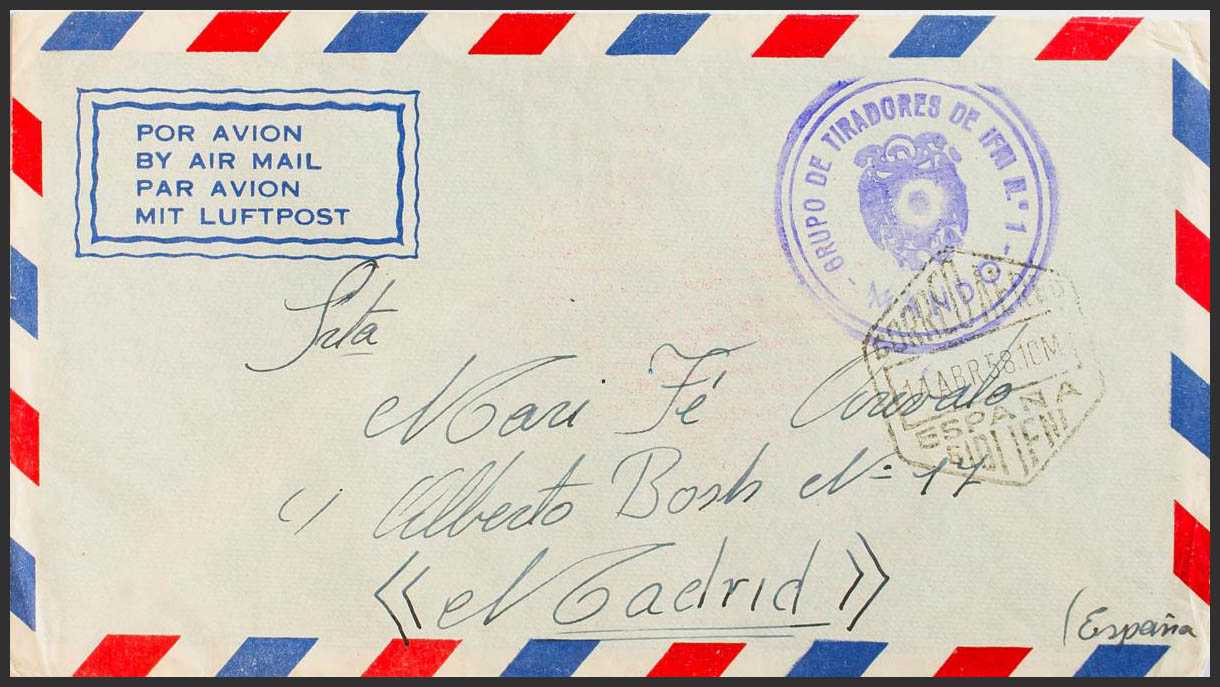 POR AVION
BY AIR MAIL
PAR AVION
MIT LUFTPOST
- GRUPO DE TIRADORES DE IFNI N.º 1 -
MANDO
CORREO AEREO
14 ABR 58.10M
ESPAÑA
SIDI IFNI
Srta
Mari Fé
C/ Alberto Bosh Nº 17
«Madrid»
(España